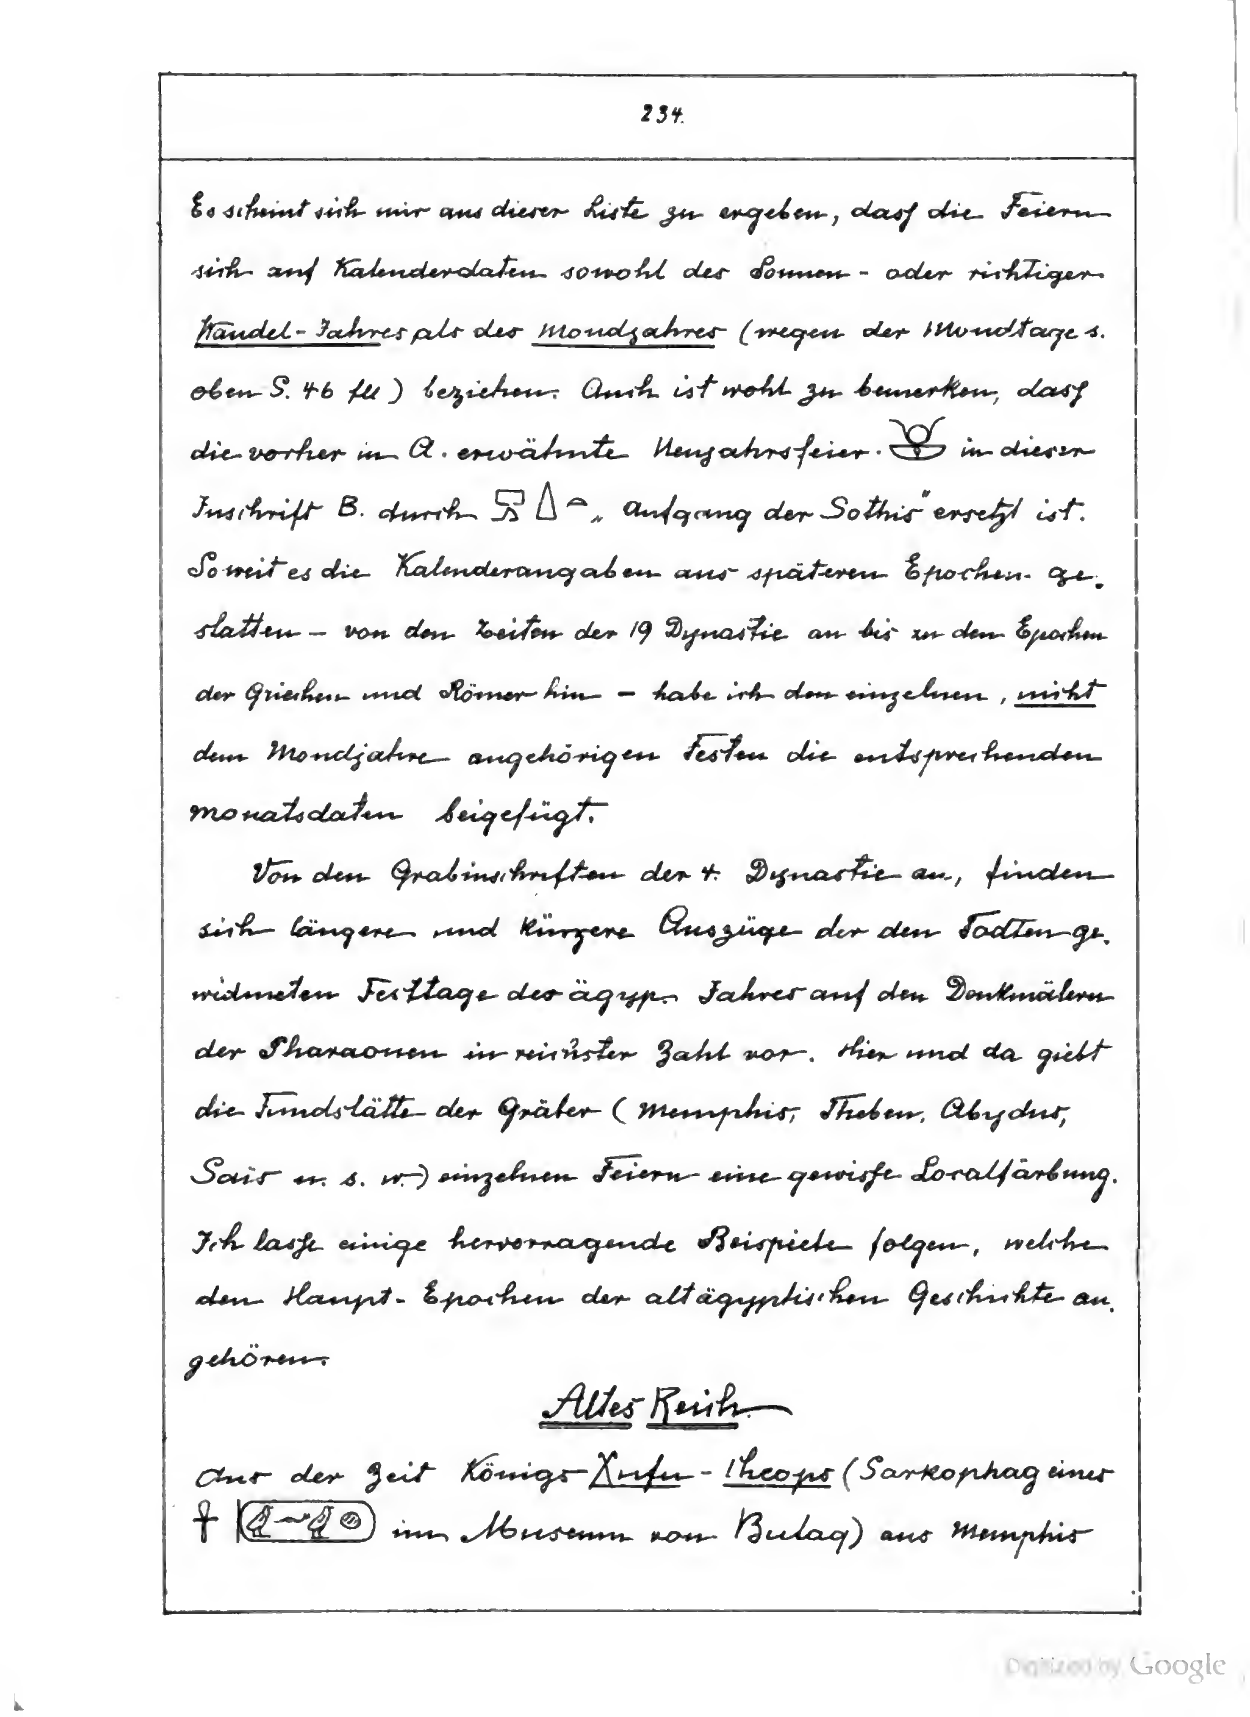 234.
Es scheint sich mir aus dieser Liste zu ergeben, dass die Feiern
sich auf Kalenderdaten sowohl des Sonnen- oder richtiger
Wandel-Jahres als des Mondjahres (wegen der Mondtage s.
oben S. 46 fll) beziehen. Auch ist wohl zu bemerken, dass
die vorher in A. erwähnte Neujahrsfeier in dieser
Inschrift B. durch „Aufgang der Sothis" ersetzt ist.
Soweit es die Kalenderangaben aus späteren Epochen ge-
statten – von den Zeiten der 19 Dynastie an bis zu den Epochen
der Griechen und Römer hin – habe ich den einzelnen, nicht
dem Mondjahre angehörigen Festen die entsprechenden
Monatsdaten beigefügt.
Von den Grabinschriften der 4. Dynastie an, finden
sich längere und kürzere Auszüge der den Todten ge-
widmeten Festtage des ägyp. Jahres auf den Denkmälern
der Pharaonen in reichster Zahl vor. Hier und da giebt
die Fundstätte der Gräber (Memphis, Theben, Abydus,
Sais u. s. w.) einzelnen Feiern eine gewisse Localfärbung.
Ich lasse einige hervorragende Beispiele folgen, welche
den Haupt-Epochen der altägyptischen Geschichte an-
gehören.
Altes Reich.
Aus der Zeit Königs Xufu-Cheops (Sarkophag eines
im Museum von Bulaq) aus Memphis
Digitized by Google